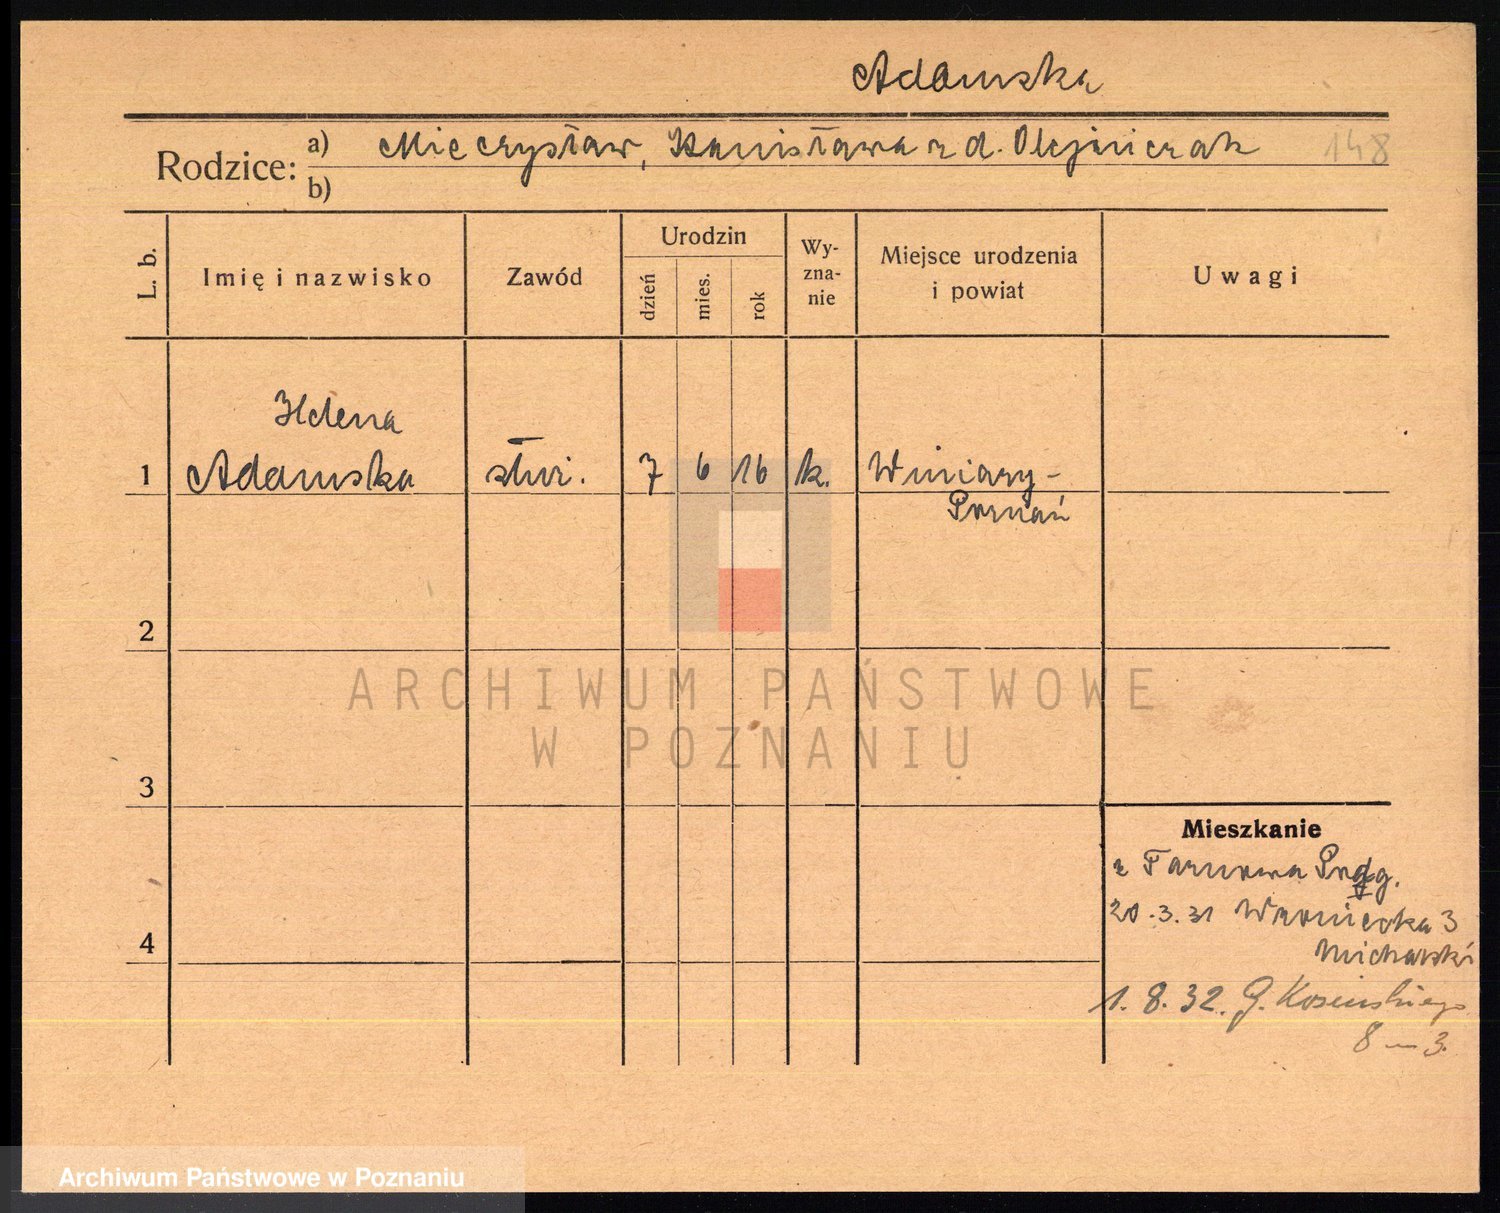 Adamska
Rodzice: a) Mieczysław, Stanisława z d. Olejniczak 148
b)
L. b.
Imię i nazwisko
Zawód
Urodzin
dzień
mies.
rok
Wy-
zna-
nie
Miejsce urodzenia
i powiat
Uwagi
Helena
1 Adamska służ. 7 6 16 k. Winiary-
Poznań
2
3
4
Mieszkanie
z Tarnowa Podg.
20.3.31 3
1. 8. 32. G. Kosińskiego
8 – 3.
ARCHIWUM PAŃSTWOWE
W POZNANIU
Archiwum Państwowe w Poznaniu